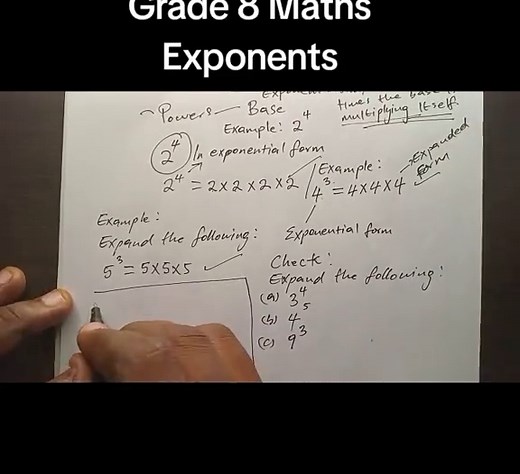 Grade 8 Maths
Exponents
times the base is
multiplying itself.
~ Powers — Base
Example: 2^4
2^4 In exponential form
2^4 = 2×2×2×2
Example:
4^3 = 4×4×4
Expanded
form
Exponential form
Example:
Expand the following:
5^3 = 5×5×5
Check:
Expand the following:
(a) 3^4
(b) 4^5
(c) 9^3